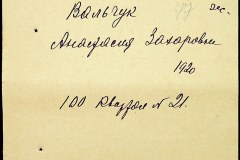 Вальчук
Анастасия Захаровна
1920
100 квартал № 21.